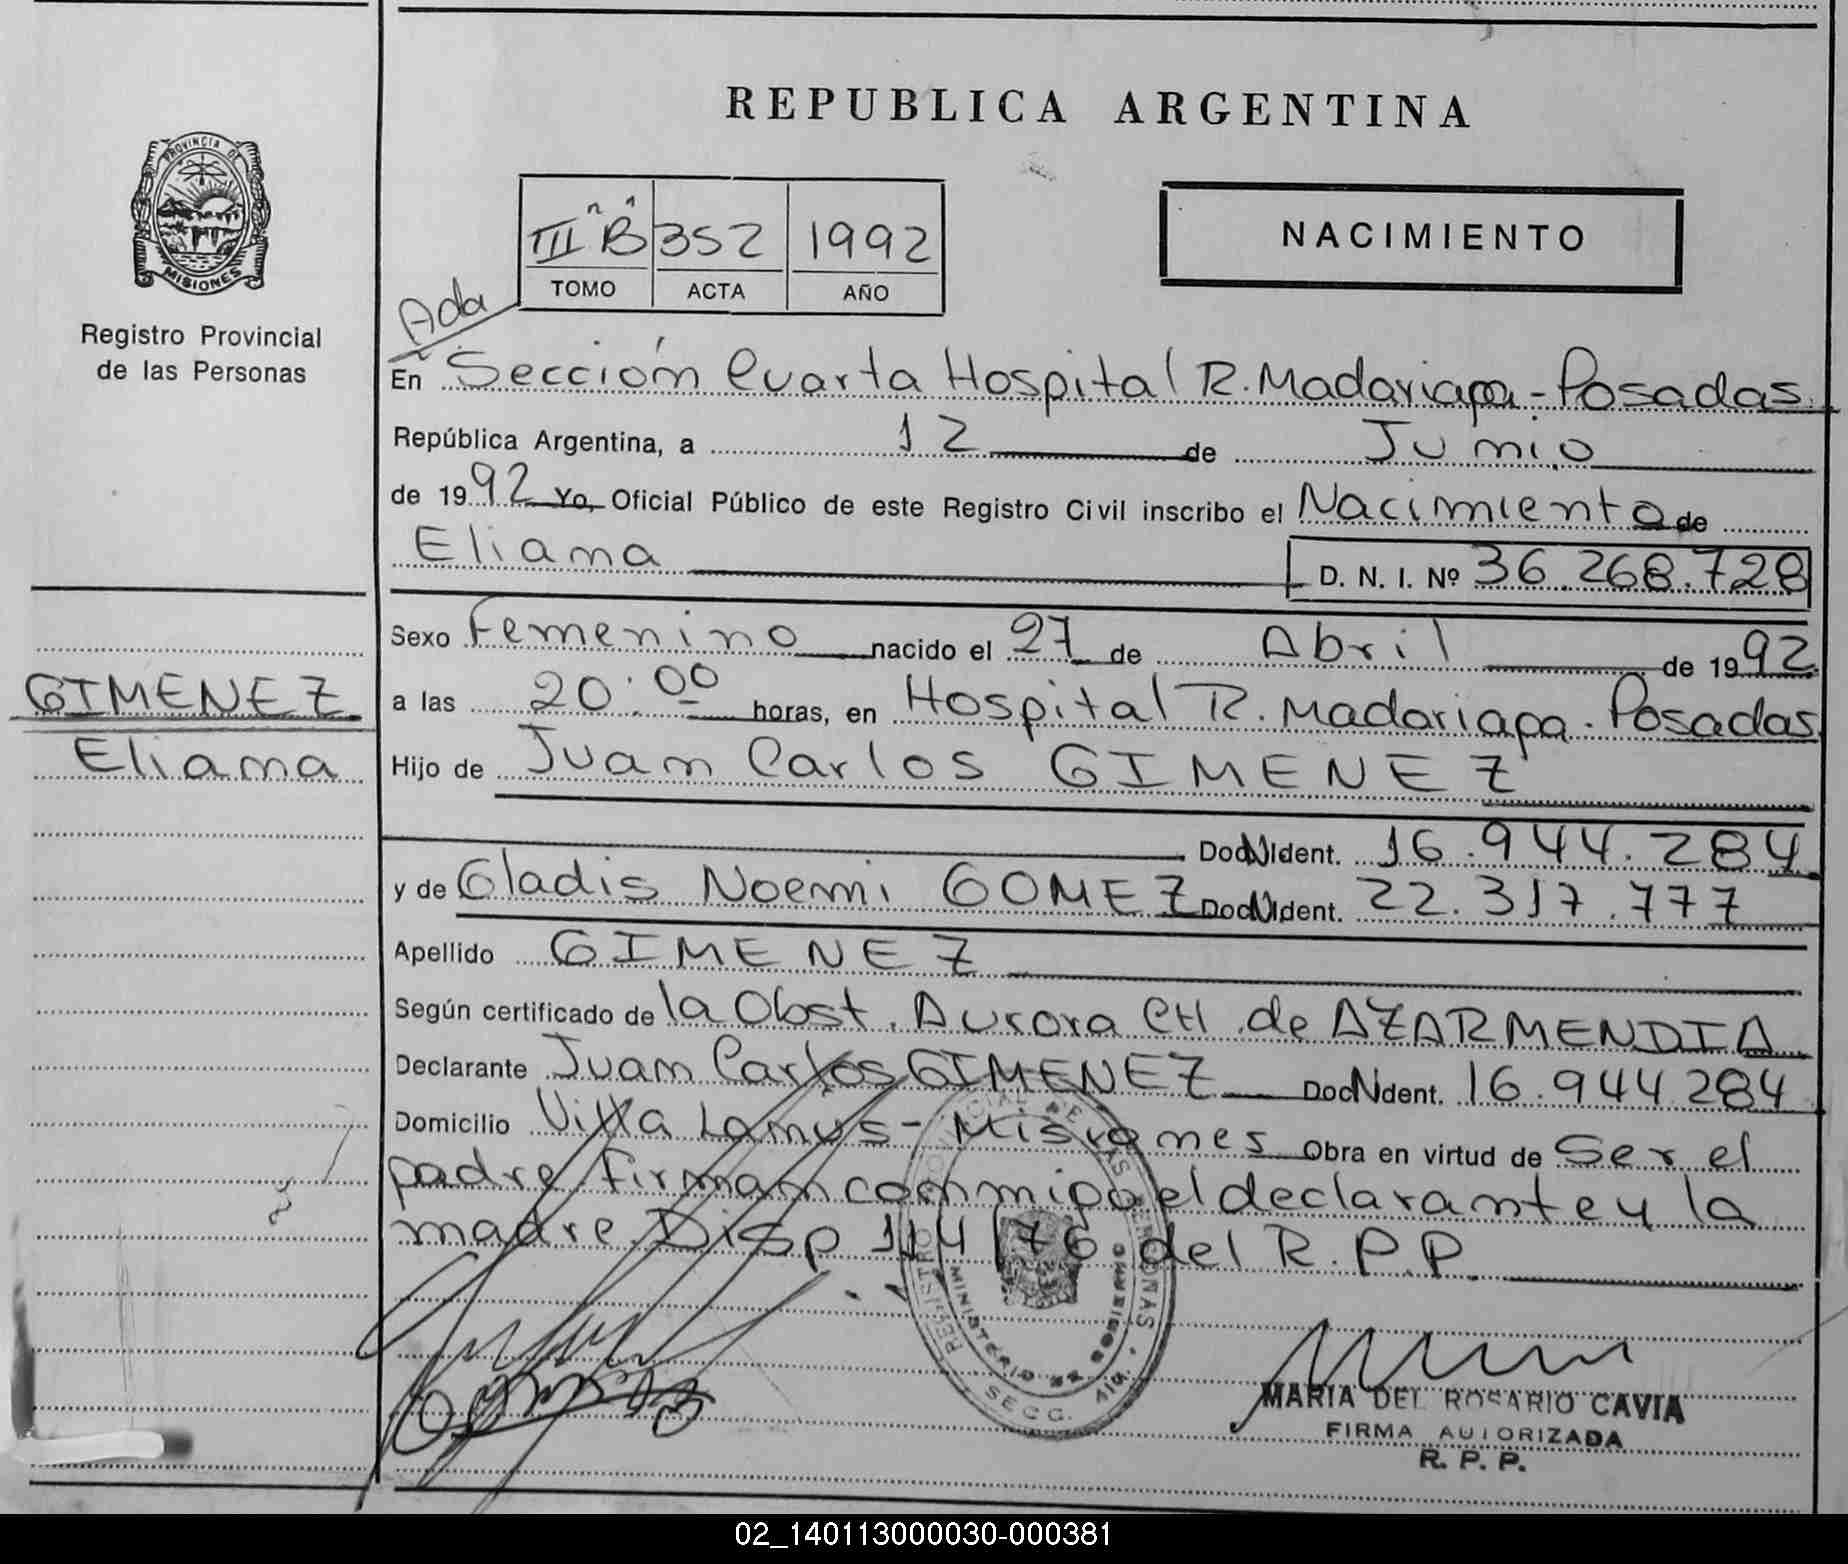 REPUBLICA ARGENTINA
PROVINCIA DE
MISIONES
Registro Provincial
de las Personas
III "B" 352 1992
TOMO ACTA AÑO
NACIMIENTO
Ada
En Sección Cuarta Hospital R. Madariaga - Posadas
República Argentina, a 12 de Junio
de 1992 Yo, Oficial Público de este Registro Civil inscribo el Nacimiento de
Eliana D. N. I. Nº 36.268.728
Sexo Femenino nacido el 27 de Abril de 1992
GIMENEZ
Eliana
a las 20:00 horas, en Hospital R. Madariaga - Posadas
Hijo de Juan Carlos GIMENEZ
Doc N Ident. 16.944.284
y de Gladis Noemi GOMEZ Doc N Ident. 22.317.777
Apellido GIMENEZ
Según certificado de la Obst. Aurora CH de AZARMENDIA
Declarante Juan Carlos GIMENEZ Doc N Ident. 16.944.284
Domicilio Villa Lanús - Misiones Obra en virtud de Ser el
padre firman conmigo el declarante y la
madre Disp 114/76 del R.P.P.
REGISTRO PROVINCIAL DE LAS PERSONAS
MINISTERIO DE GOBIERNO
SECC.
MARIA DEL ROSARIO CAVIA
FIRMA AUTORIZADA
R. P. P.
02_140113000030-000381